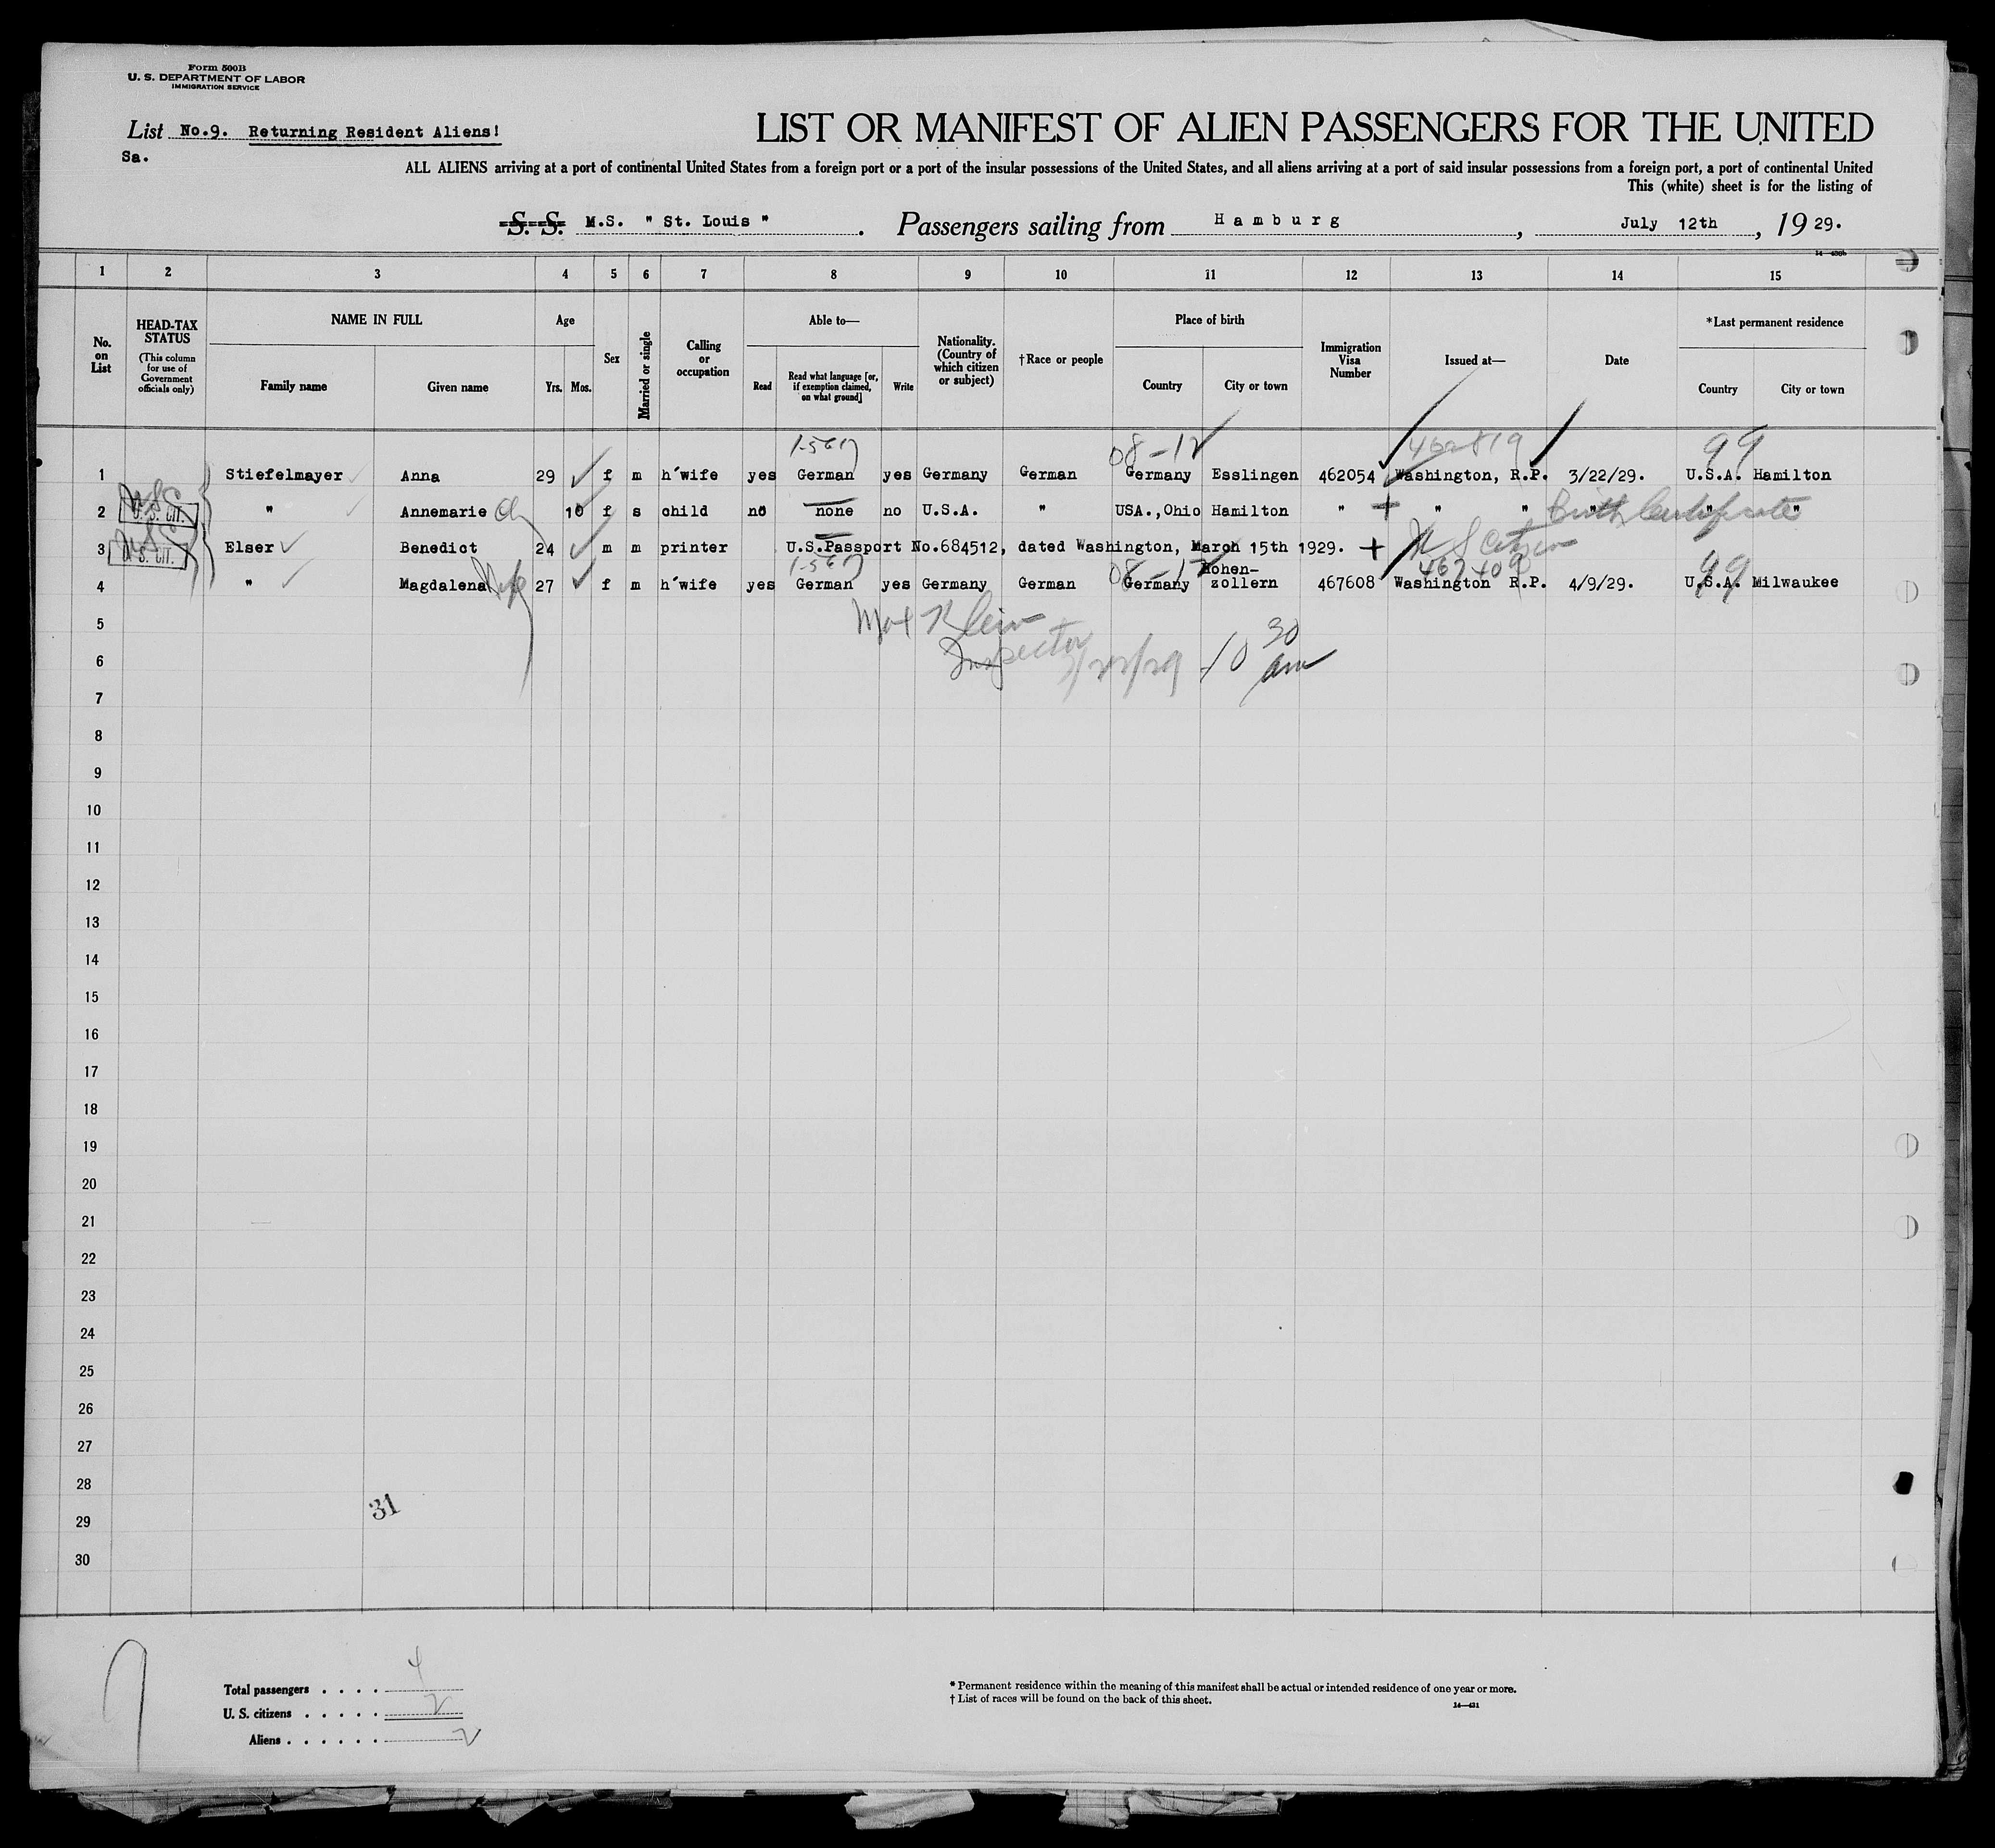 Form 500B
U. S. DEPARTMENT OF LABOR
IMMIGRATION SERVICE
List No.9. Returning Resident Aliens!
Sa.
LIST OR MANIFEST OF ALIEN PASSENGERS FOR THE UNITED
ALL ALIENS arriving at a port of continental United States from a foreign port or a port of the insular possessions of the United States, and all aliens arriving at a port of said insular possessions from a foreign port, a port of continental United
This (white) sheet is for the listing of
S. S. M.S. " St. Louis " . Passengers sailing from Hamburg , July 12th , 19 29.
1 2 3 4 5 6 7 8 9 10 11 12 13 14 15
No. on List
HEAD-TAX STATUS (This column for use of Government officials only)
NAME IN FULL
Family name Given name
Age
Yrs. Mos.
Sex
Married or single
Calling or occupation
Able to—
Read Read what language [or, if exemption claimed, on what ground] Write
Nationality. (Country of which citizen or subject)
†Race or people
Place of birth
Country City or town
Immigration Visa Number
Issued at—
Date
*Last permanent residence
Country City or town
08-12 462819 99
1 Stiefelmayer Anna 29 f m h'wife yes German yes Germany German Germany Esslingen 462054 Washington, R.P. 3/22/29. U.S.A. Hamilton
U. S. CIT.
2 " Annemarie Ch 10 f s child no none no U.S.A. " USA.,Ohio Hamilton " + " " " " "
Birth Certificate
U. S. CIT.
3 Elser Benedict 24 m m printer U.S.Passport No.684512, dated Washington, March 15th 1929. +
U S Citizen
08-12 467409 99
4 " Magdalena Wife 27 f m h'wife yes German yes Germany German Germany Hohen-zollern 467608 Washington R.P. 4/9/29. U.S.A. Milwaukee
Max Klein
Inspector 7/22/29 10 30 am
5
6
7
8
9
10
11
12
13
14
15
16
17
18
19
20
21
22
23
24
25
26
27
28
31
29
30
Total passengers . . . . 4
U. S. citizens . . . . . 2
Aliens . . . . . . 2
* Permanent residence within the meaning of this manifest shall be actual or intended residence of one year or more.
† List of races will be found on the back of this sheet.
14—431